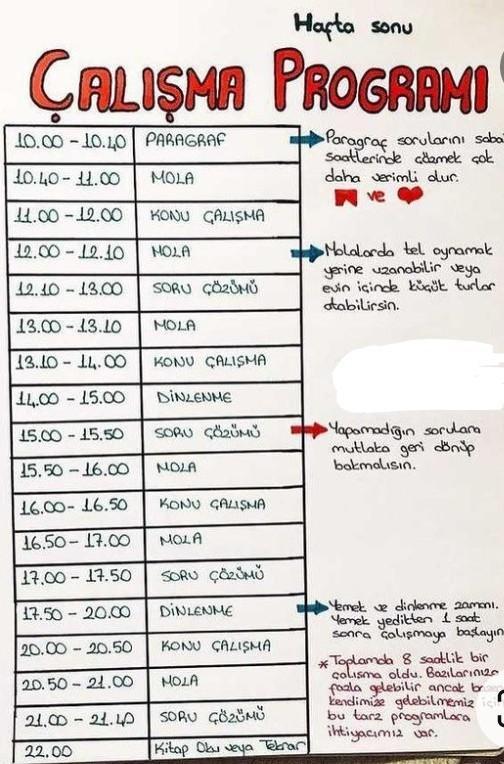 Hafta sonu
ÇALIŞMA PROGRAMI
10.00 - 10.40 PARAGRAF
Paragraf sorularını
saatlerinde çözmek çok
daha verimli olur.
ve
10.40 - 11.00 MOLA
11.00 - 12.00 KONU ÇALIŞMA
12.00 - 12.10 MOLA
Molalarda tel oynamak
yerine uzanabilir veya
evin içinde küçük turlar
atabilirsin.
12.10 - 13.00 SORU ÇÖZÜMÜ
13.00 - 13.10 MOLA
13.10 - 14.00 KONU ÇALIŞMA
14.00 - 15.00 DİNLENME
15.00 - 15.50 SORU ÇÖZÜMÜ
Yapamadığın sorulara
mutlaka geri dönüp
bakmalısın.
15.50 - 16.00 MOLA
16.00 - 16.50 KONU ÇALIŞMA
16.50 - 17.00 MOLA
17.00 - 17.50 SORU ÇÖZÜMÜ
17.50 - 20.00 DİNLENME
Yemek ve dinlenme zamanı.
Yemek yedikten 1 saat
sonra çalışmaya başlayın
20.00 - 20.50 KONU ÇALIŞMA
20.50 - 21.00 MOLA
21.00 - 21.40 SORU ÇÖZÜMÜ
22.00 Kitap Oku veya Tekrar
* Toplamda 8 saatlik bir
çalışma oldu. Bazılarınıza
fazla gelebilir ancak
kendimize gelebilmemiz için
bu tarz programlara
ihtiyacımız var.